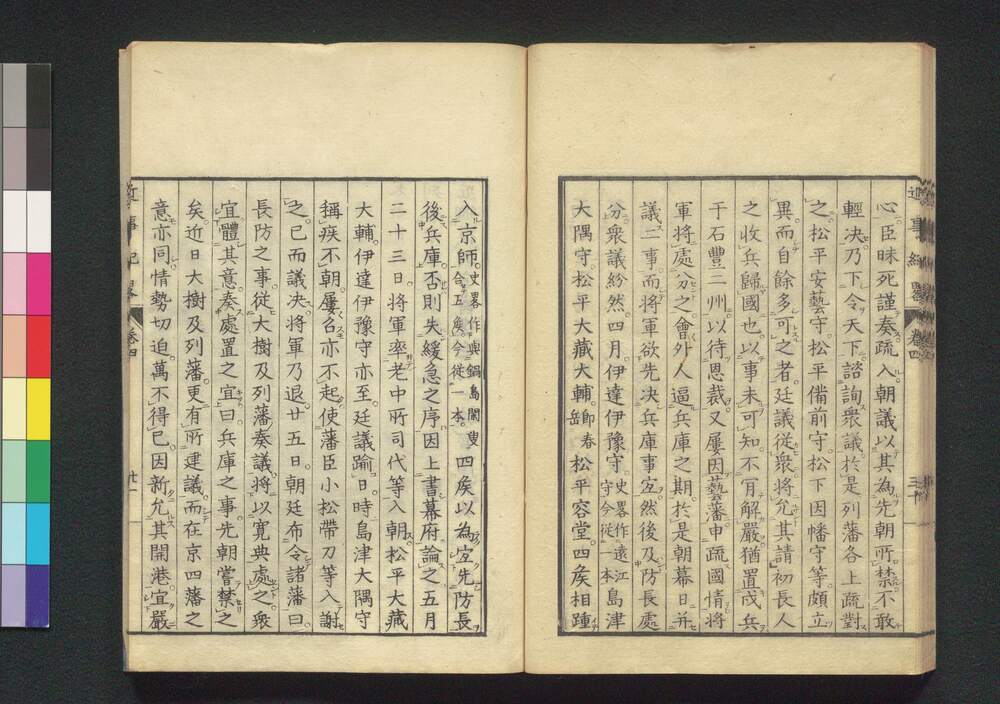 心臣昧死謹奏疏入朝議以其為先朝所禁不敢
輕决乃下令天下諮詢衆議於是列藩各上疏對
之松平安藝守松平備前守松下因幡守等頗立
異而自餘多可之者廷議從衆將允其請初長人
之收兵歸國也以事未可知不肎解嚴猶置戍兵
于石豐二州以待恩裁又屢因藝藩申疏國情將
軍將處分之會外人逼兵庫之期於是朝幕日并
議二事而將軍欲先决兵庫事宐然後及防長處
分衆議紛然四月伊達伊豫守史畧作遠江守今從一本島津
大隅守松平大藏大輔即春岳松平容堂四矦相踵
入京師史畧作與鍋島閑叟合五矦今從一本四矦以為宐先防長
後兵庫否則失緩急之序因上書幕府論之五月
二十三日將軍率老中所司代等入朝松平大藏
大輔伊達伊豫守亦至廷議踰日時島津大隅守
稱疾不朝屢召亦不起使藩臣小松帶刀等入謝
之已而議决將軍乃退廿五日朝廷布令諸藩曰
長防之事從大樹及列藩奏議將以寛典處之衆
宜體其意奏處置之宜曰兵庫之事先朝嘗禁之
矣近日大樹及列藩更有所建議而在京四藩之
意亦同情勢切迫萬不得已因新允其開港宜嚴
近事紀畧 卷四
廿一